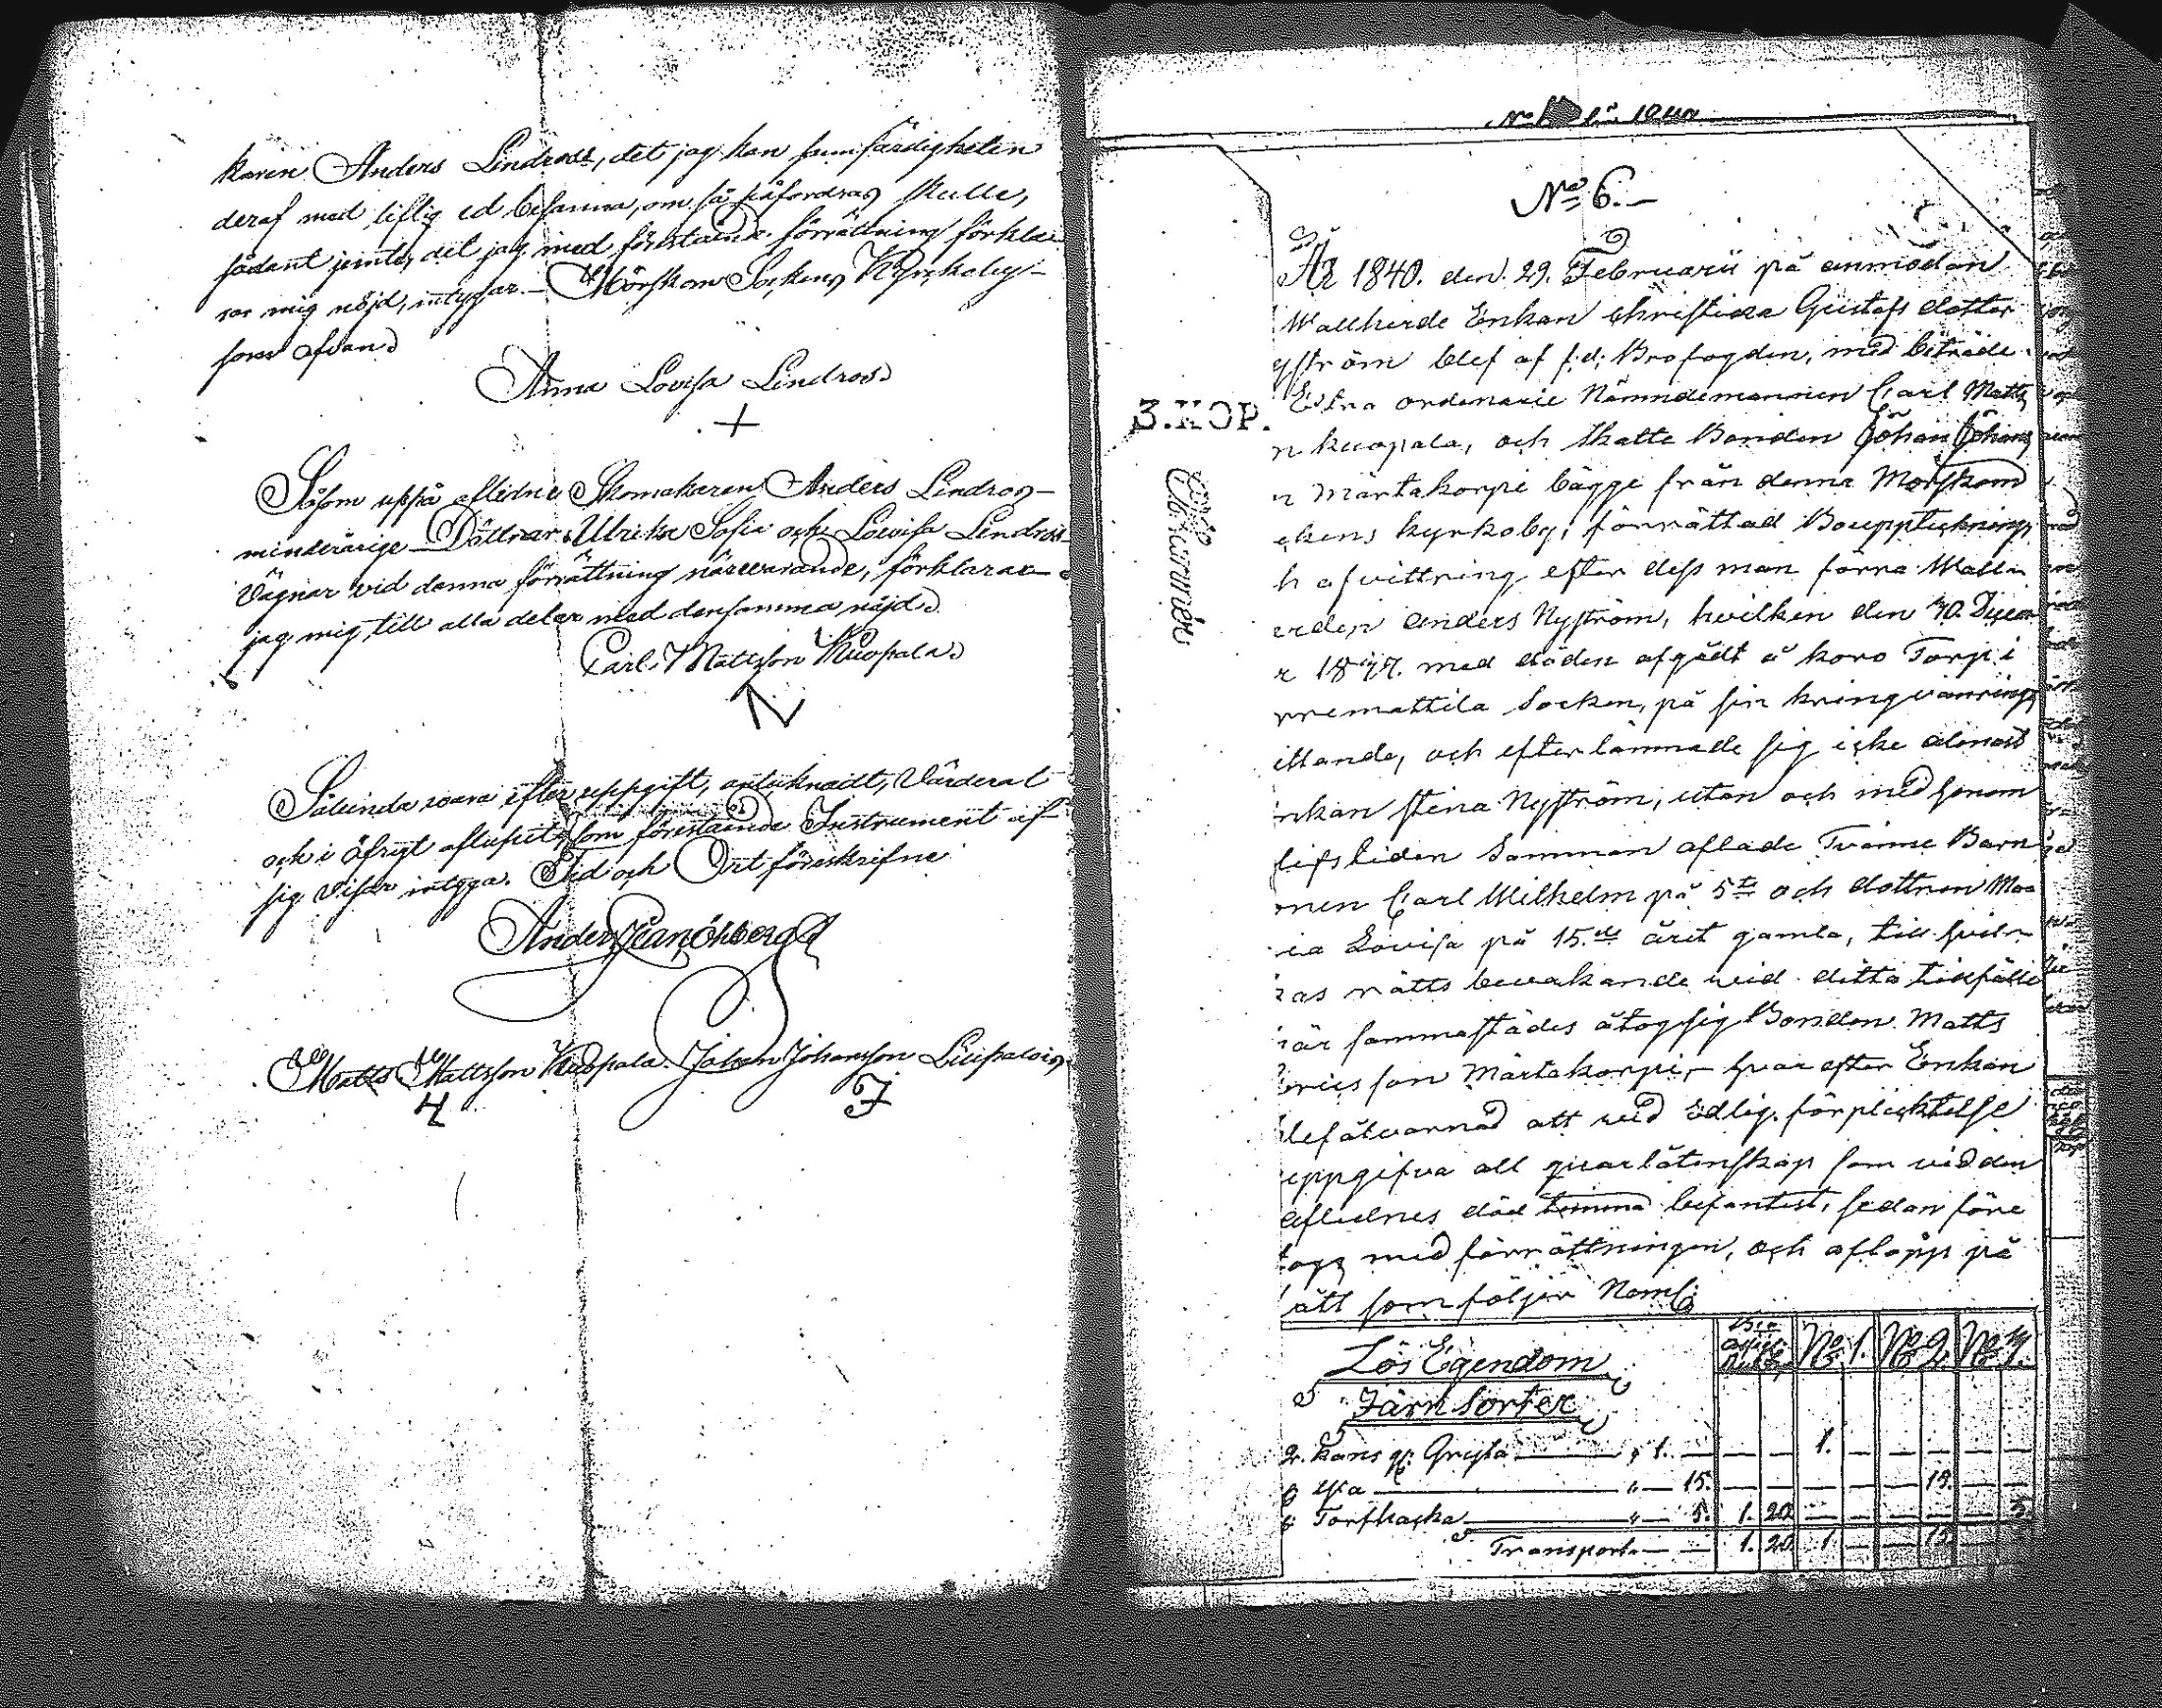 karen Anders Lindross, det jag kan sannfärdigheten
deraf med liflig ed besanna, om så påfordras skulle,
sådant jemte, det jag med förestående förrättning förkla-
rar mig nöjd, intygar. Mörskom Sockens Kyrkoby
som ofvan
Anna Lovisa Lindros
Såsom uppå aflidne Skomakaren Anders Lindros
minderårige Döttrar Ulrika Sofia och Lovisa Lindros
Vägnar vid denna förrättning närvarande, förklarar
jag mig till alla delar med densamma nöjd
Carl Mattsson Kuopala
Sålunda vara efter uppgift, antecknadt, Värderat
och i öfrigt aflupit, som förestående Instrument af
sig visar intyga. Tid och Ort föreskrifne
Anders Öhberg
Matts Mattsson Kuopala. Johan Johansson
No 6.
År 1840. den 29. Februarii på anmodan
Wallherde Enkan Christina Gustafs dotter
yström blef af f.d. Brofogden, med biträde
Extra ordinarie Nämndemannen Carl Matts
n Kuopala, och Skatte Bonden Johan Johans
n Märtakorpi bägge från denna Morskom
ckens kyrkoby, förrättad Bouppteckning
h afvittring efter dess man förra Wall
erden Anders Nyström, hvilken den 30. Decem
r 1837. med döden afgådt å koro Torp i
rremattila Socken, på sin kringvandring
ittande, och efterlämnade sig icke allenast
nkan Stina Nyström, utan och med henom
lifstiden Samman aflade Tvänne Barn
nen Carl Wilhelm på 5te och dottren Ma
ia Lovisa på 15.de året gamla, till hvil
as rätts bevakande vid detta tillfälle
är sammastädes åtog sig Bonden Matts
ericsson Märtakorpi, hvarefter Enkan
blef åtvarnad att vid Edlig förplicktelse
uppgifva all qvarlåtenskap som vid den
aflednes död timma befantest, sedan före
togs med förrättningen, och aflopp på
ätt som följer Neml:
Lös Egendom No 1. No 2. No
Järn Sorter
2. kans gl: Gryta " 1. 1.
8 Yxa " 15. 15.
8 Torfhacka " 5. 1. 20 5.
Transport 1. 20 1 15.
3.KOP.